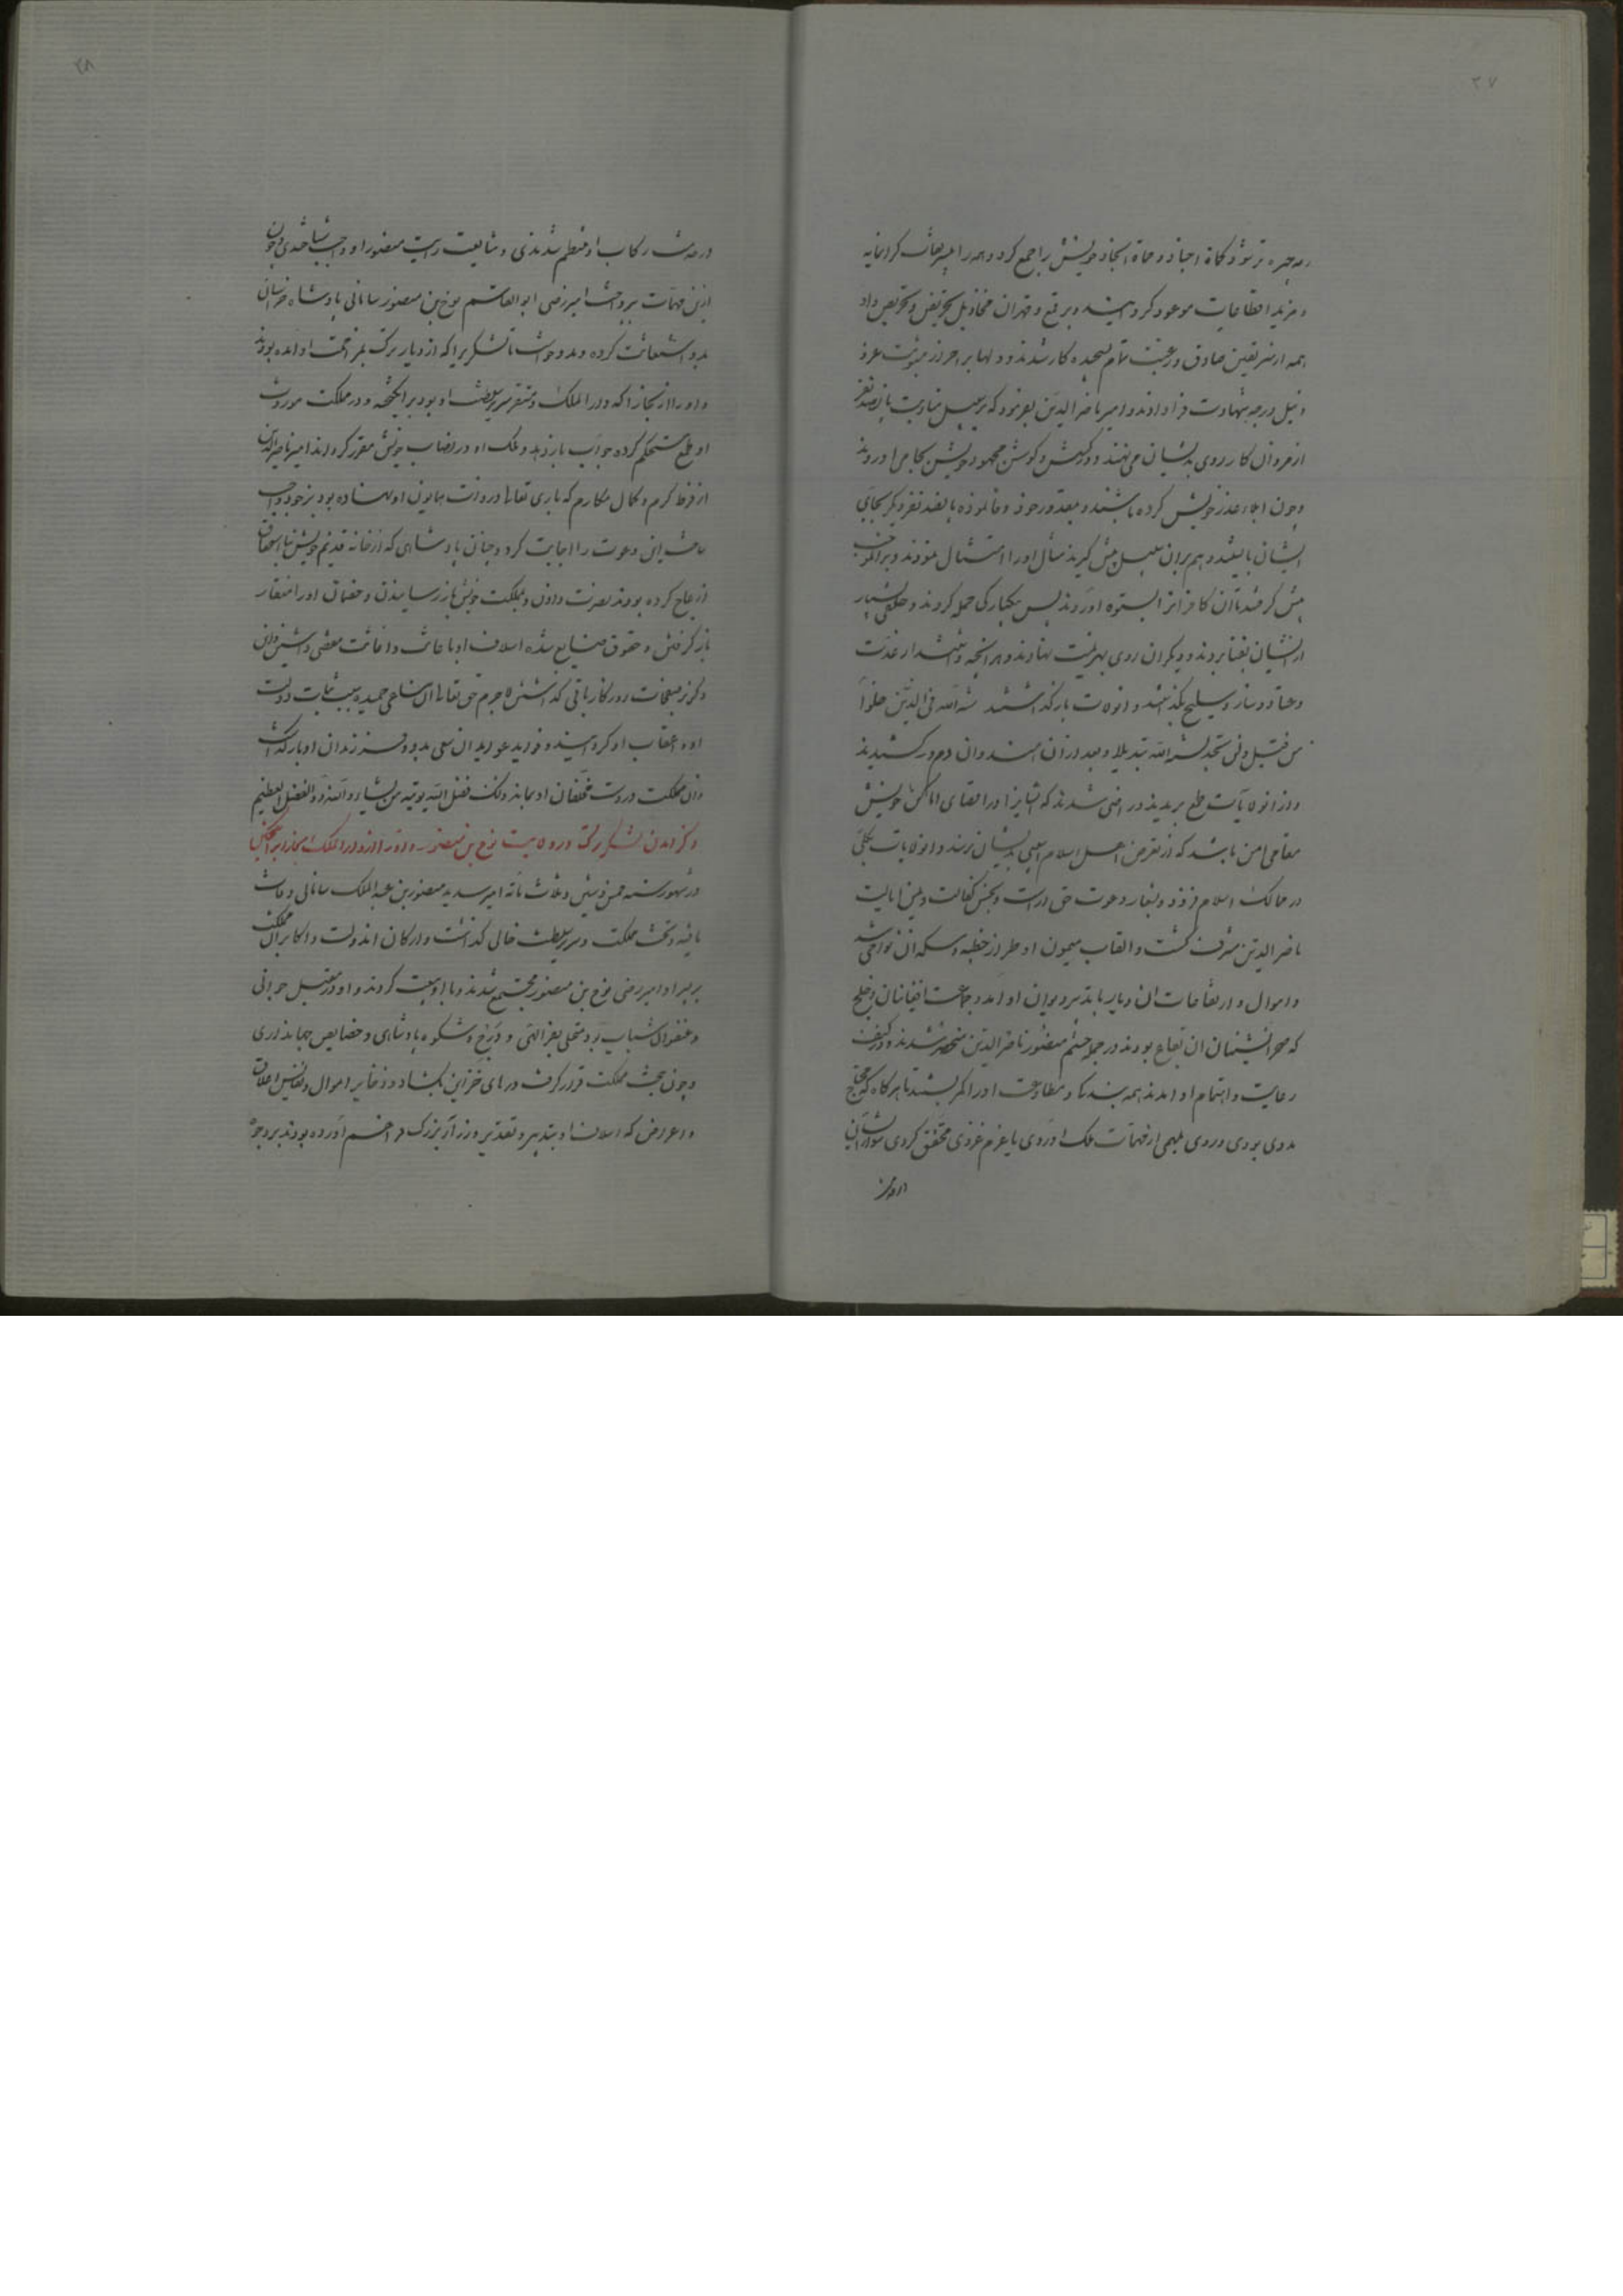 ۲۷
و مزید اقطاعات موعود کردانید و بر قمع و قهران مخاذیل تحریض و تحریص داد
همه از سر یقین صادق و رغبت تمام بسیجده کار شدند و دلها بر احراز مثوبت غزو
و نیل درجه شهادت قرار دادند و امیر ناصر الدین بفرمود که بر سبیل مناوبت پانصد نفر
از مردان کار روی بدیشان می نهند و در کشش و کوشش مجهود خویش بجای می اوردند
و چون ابلاء عذر خویش کرده باشند و بقدر خود وفا نموده پانصد نفر دیکر بجای
ایشان بایستند و هم بران سبیل پیش کیرند مثال اورا امتثال نمودند و بران موجب
پیش کرفتند تا آن کافران را بستوه اوردند پس بیکبارکی حمله کردند و خلقی بسیار
از ایشان بفنا بردند و دیکران روی بهزیمت نهادند و هر انچه داشتند از عدت
و عتاد و ساز و سلیح بکذاشتند و انولایت بازکذاشتند سنة الله فی الذین خلوا
من قبل ولن تجد لسنة الله تبدیلا و بعد از آن هندوان دم در کشیدند
و از انولایت طمع بریدند و راضی شدند که ایشانرا در اقصای اماکن خویش
مقامی امن باشد که از تعرض اهل اسلام آسیبی بدیشان نرسد و انولایات بکلی
در ممالک اسلام فزود و بشعار دعوت حق آراست و بحسن کفالت و یمن ایالت
ناصر الدین مشرف کشت و القاب میمون او طراز خطبه و سکه آن نواحی شد
و اموال و ارتفاعات ان دیار با تدبیر دیوان او آمد و جماعت افغانان و خلج
که صحرانشینان ان بقاع بودند در جمله حشم منصور ناصر الدین منحصر شدند و در کنف
رعایت و اهتمام او امدند همه بندکی و مطاوعت اورا کمر بستند تا هرکاه که محتاج
مددی بودی و روی بمهمی از مهمات ملک اوردی یا عزم غزوی محقق کردی سواران
در خدمت
۲۸
در خدمت رکاب او منظم شدندی و متابعت رایت منصور او واجب شناختندی و چون
ازین مهمات بپرداخت امیر رضی ابو القاسم نوح بن منصور سامانی پادشاه خراسان
بدو استعانت کرده و مدد خواست تا لشکریرا که از دیار ترک بمزاحمت او آمده بودند
و اورا از بخارا که دار الملک و مستقر سریر سلطنت او بود برانکیخته و در مملکت موروث
او طمع مستحکم کرده جواب باز دهد و ملک او در نصاب خویش مقرر کرداند امیر ناصر الدین
از فرط کرم و کمال مکارم که باری تعالی در ذات همایون او نهاده بود بر خود واجب
داشت این دعوت را اجابت کرد و چنان پادشاهی که از خانه قدیم خویش بنا استحقاق
ازعاج کرده بودند نصرت دادن و بمملکت خویش باز رسانیدن و خصمان اورا منقار
باز کرفتن و حقوق ضایع شده اسلاف او باعانت و اغاثت مقضی داشتن و این
ذکر بر صفحات روزکار باقی کذاشتن لاجرم حق تعالی ان مساعی حمیده سبب ثبات دولت
او و اعقاب او کردانید و فواید عواید ان سعی بدو و فرزندان او باز کذاشت
و ان مملکت در دست خلفان او بماند و ذلک فضل الله یؤتیه من یشاء و الله ذو الفضل العظیم
ذکر آمدن لشکر ترک در ولایت نوح بن منصور
در شهور سنه خمس و ستین و ثلاث مائه امیر سدید منصور بن عبد الملک سامانی وفات
یافته و تخت مملکت و سریر سلطنت خالی کذاشت و ارکان اندولت و اکابر ان مملکت
بر پسر او امیر رضی نوح بن منصور مجتمع شدند و با او بیعت کردند و او در مقتبل جوانی
و عنفوان شباب بود متحلی بفر الهی و فرخ و شکوه پادشاهی و خصایص جهانداری
و چون بتخت مملکت قرار کرفت درهای خزاین بکشاد و ذخایر اموال و نفایس اعلاق
و اعراض که اسلاف او بتدبیر و تقدیر وزرآء بزرک فراهم آورده بودند بر وجوه